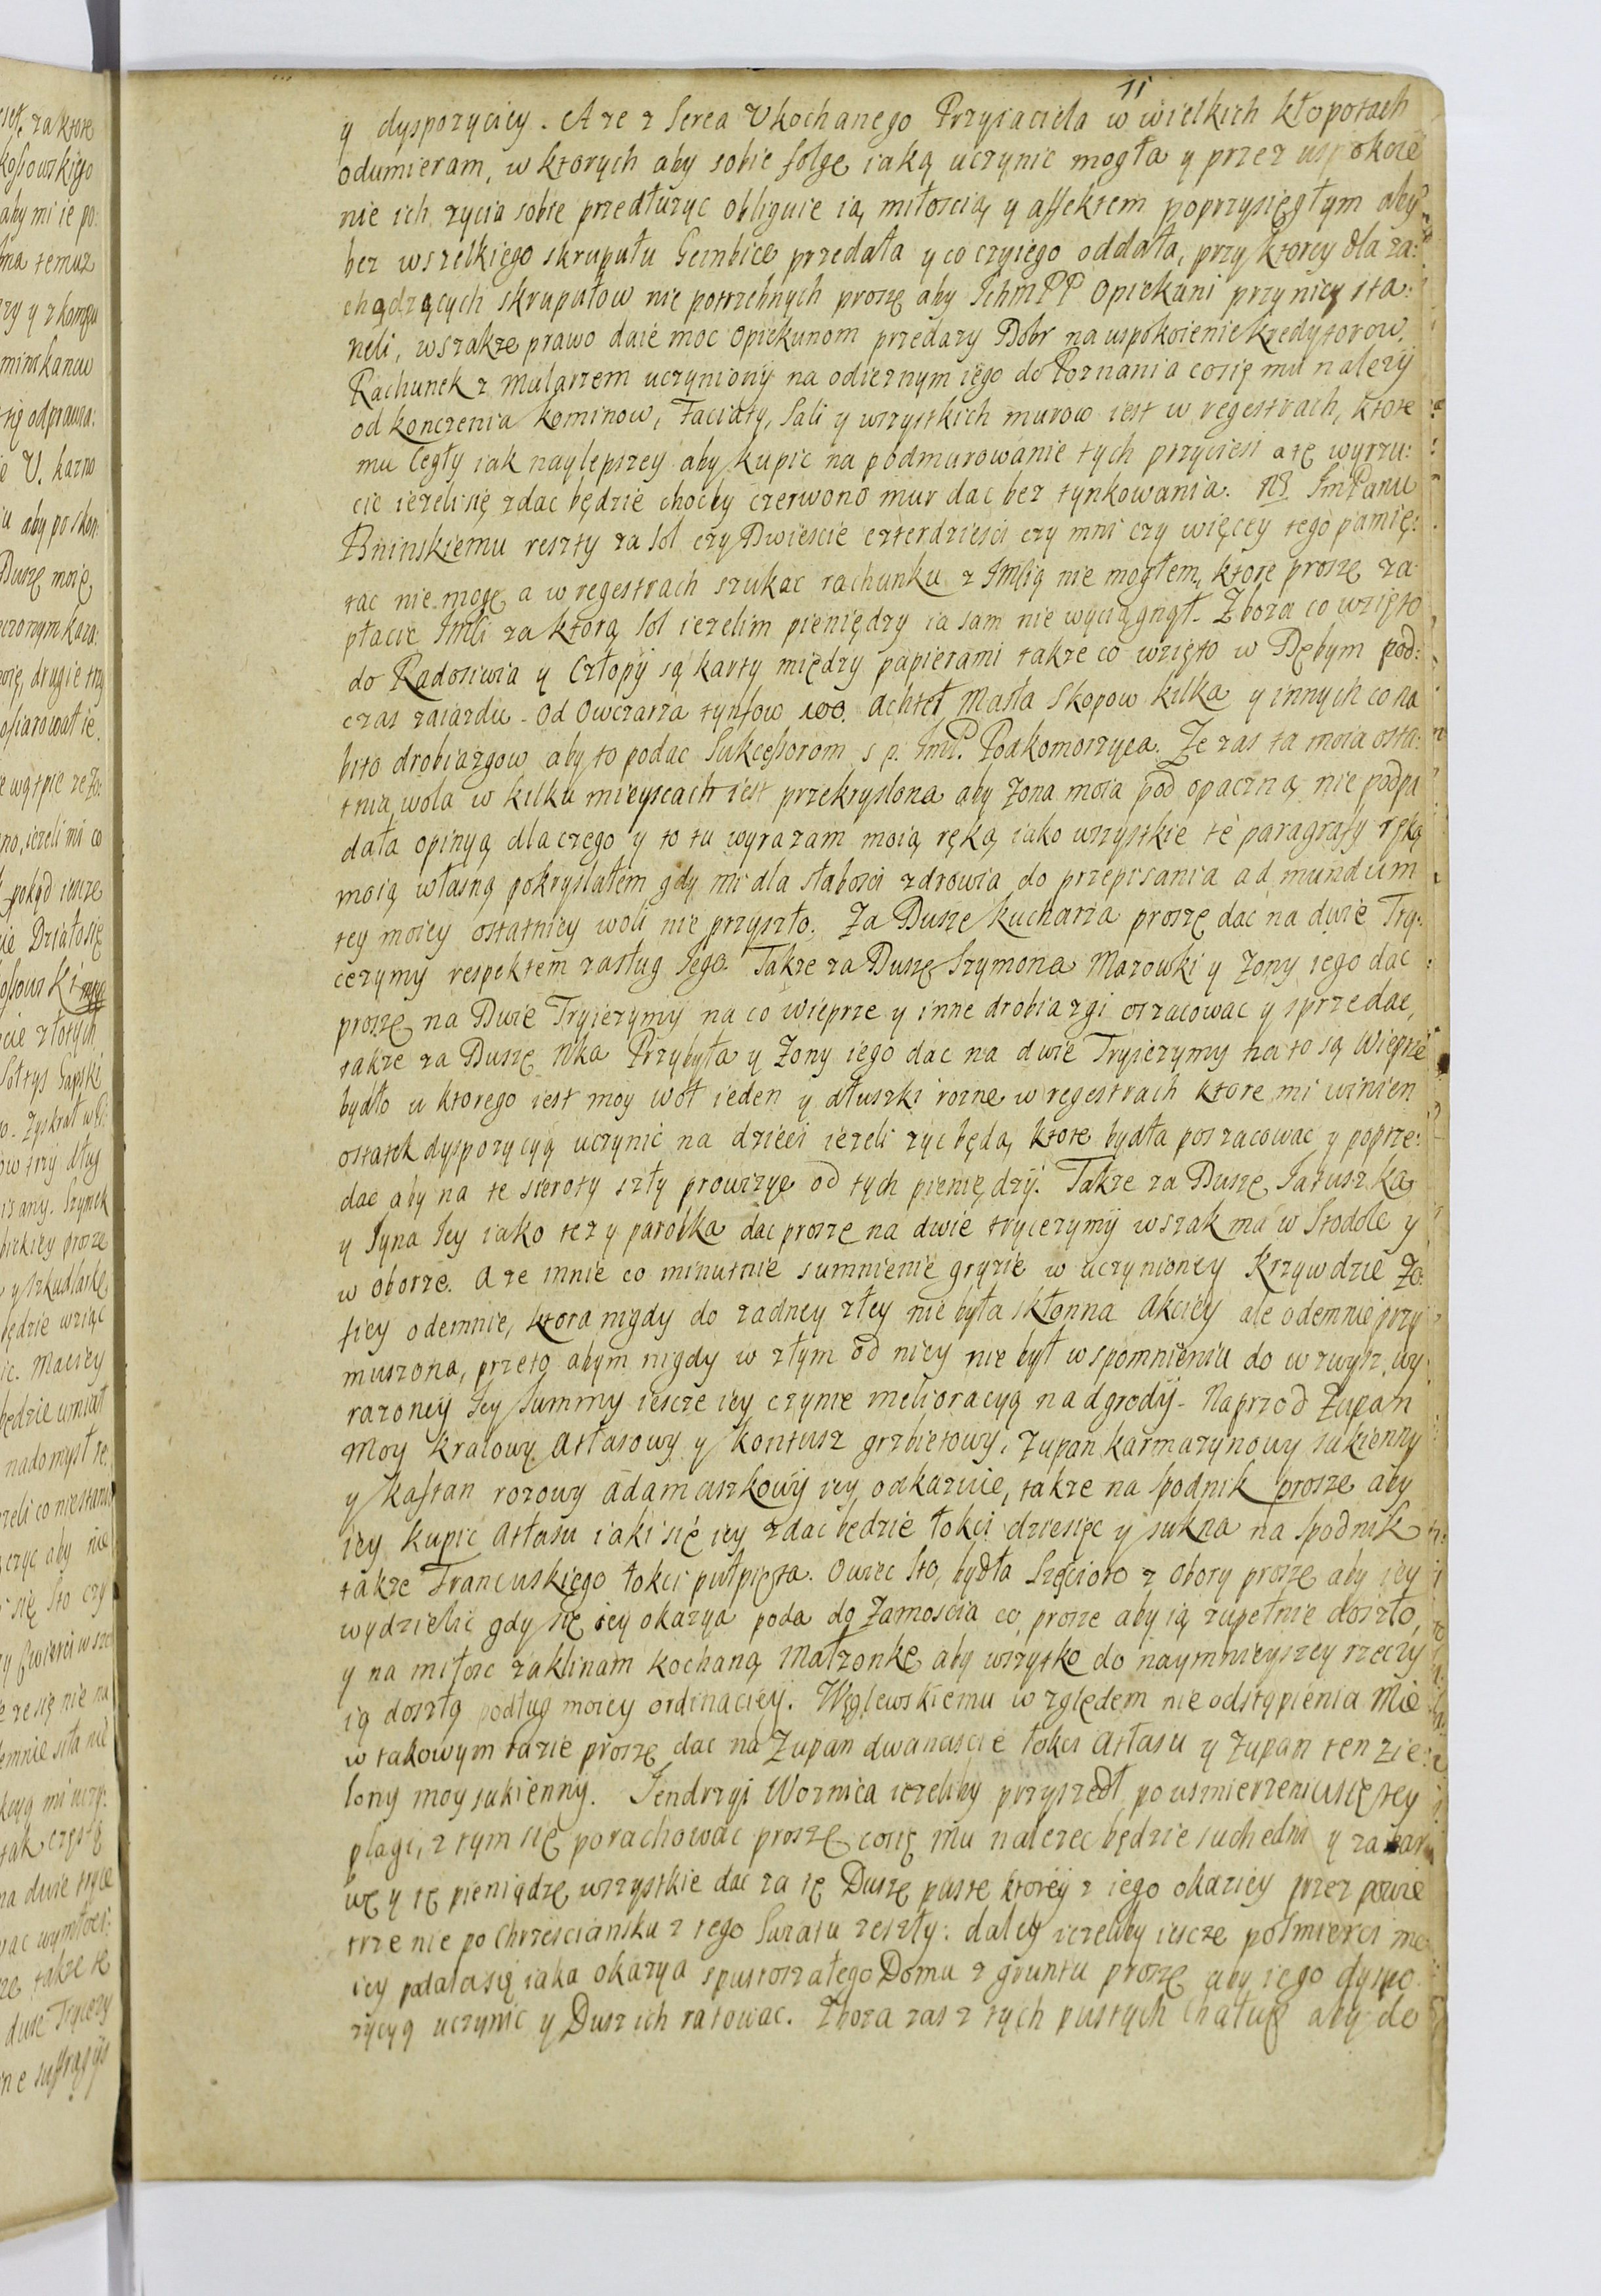 11
y dyspozyciey. A ze z Serca Ukochanego Przyiaciela w wielkich kłopotach
odumieram, w ktorych aby sobie folgę iaką uczynic mogła y przez uspokoie
nie ich zycia sobie przedłuzyc obliguie ią miłoscią y affektem poprzysięgłym aby
bez wszelkiego skrupułu Gembice przedała y co czyiego oddała, przy ktorey dla za:
chądzących skrupułow nie potrzebnych proszę aby IchmPP Opiekuni przy niey sta:
neli, wszakze prawo daie moc Opiekunom przedazy Dobr na uspokoienie Kredytorow.
Rachunek z Mularzem uczyniony na odieznym iego do Poznania co się mu nalezy
od konczenia kominow, Faciaty, Sali y wszystkich murow iest w regestrach, ktore
mu Cegły iak naylepszey aby kupic na podmurowanie tych przyciesi a tę wyrzu:
cic iezeli się zdac będzie chocby czerwono mur dac bez tynkowania. NB ImPanu
Bninskiemu reszty za sol czy Dwiescie czterdziesci czy mni czy więcey tego pamię:
tac nie mogę a w regestrach szukac rachunku z IMcią nie mogłem, ktore proszę za
płacic IMci za ktorą sol iezelim pieniędzy ia sam nie wyciągnął. Zboza co wzięto
do Radosiwia y Człopy są karty między papierami takze co wzięto w Dębym pod:
czas zaiazdu. Od Owczarza tynfow 100. achtel Masła Skopow kilka y innych co na
bito drobiazgow aby to podac Sukcessorom s p. ImP. Podkomorzyca. Ze zas ta moia osta:
tnia wola w kilku mieyscach iest przekryslona aby Zona moia pod opaczną nie podpa
dała opinyą dla czego y to tu wyrazam moią ręką iako wszystkie te paragrafy ręką
moią własną pokryslałem gdy mi dla słabosci zdrowia do przepisania ad mundum
tey moiey ostatniey woli nie przyszło. Za Duszę Kucharza proszę dac na dwie Try:
cezymy respektem zasług Jego. Takze za Duszę Szymona Mazowki y Zony iego dac
proszę na Dwie Tryiezymy na co wieprze y inne drobiazgi oszacowac y sprzedac,
takze za Duszę Nka Przybyła y Zony iego dac na dwie Tryiezymy na to są Wieprze
bydło u ktorego iest moy woł ieden y dłuszki rozne w regestrach ktore mi winien
ostatek dyspozycyą uczynic na dzieci iezeli zyc będą, ktore bydła poszacowac y poprze:
dac aby na te sieroty szły prowizye od tych pieniędzy. Takze za Duszę Jatuszka
y Syna Jey iako tez y parobka dac proszę na dwie trycezymy wszak ma w Stodole y
w Oborze. A ze mnie co minutnie sumnienie gryzie w uczynioney Krzywdzie Zo
fiey odemnie, ktora nigdy do zadney złey nie była skłonna Akciey ale odemnie przy
muszona, przeto abym nigdy w złym od niey nie był wspomnieniu do wzwysz wy:
razoney Jey Summy ieszcze iey czynie melioracyą nadgrody. Naprzod Zupan
Moy kratowy Atłasowy y kontusz grzbietowy, Zupan karmazynowy sukienny
y kaftan rozowy adamaszkowy iey odkazuie, takze na spodnik proszę aby
iey kupic Atłasu iaki się iey zdac będzie łokci dziesięc y sukna na spodnik
takze Francuskiego łokci pułpięta. Owiec Sto, bydła Sześcioro z Obory proszę aby iey
wydzielic gdy się iey okazya poda do Zamoscia co proszę aby ią zupełnie doszło,
y na miłosc zaklinam kochaną Małzonkę aby wszytko do naymnieyszey rzeczy
ią doszło podług moiey ordinaciey. Węglewskiemu względem nie odstąpienia Mie
w takowym razie proszę dac na Zupan dwanascie łokci Atłasu y Zupan ten zie:
lony moy sukienny. Jendrzyi Woznica iezeliby przyszedł po usmierzeniu się tey
plagi, z tym się porachowac proszę co się mu nalezec będzie suchedni y za bar
wę y tę pieniądze wszystkie dac za tę Duszę puste ktorey z iego okaziey przez powie
trze nie po Chrzesciansku z tego Swiata zeszły: daley iezeliby ieszcze po smierci mo
iey podała się iaka okazya spustoszałego Domu z gruntu proszę aby iego dyspo
zycyą uczynic y Dusz ich ratowac. Zboza zas z tych pustych Chałup aby do